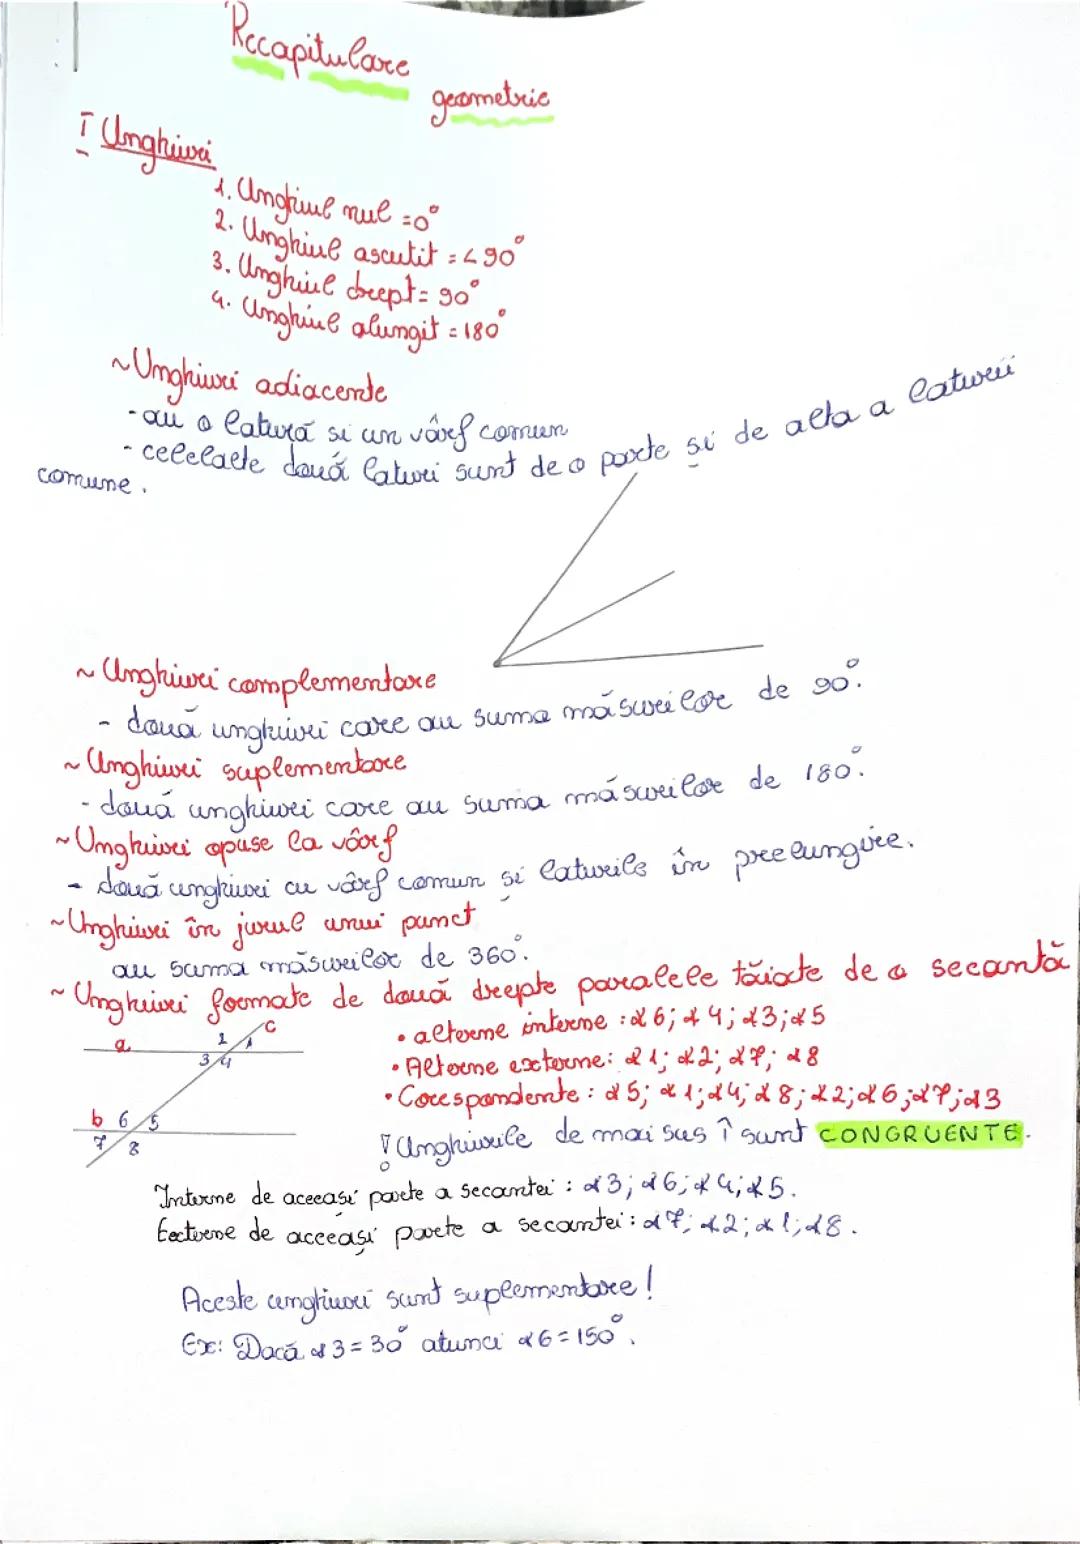 Recapitulare
geometrie
I Unghiuri
1. Unghiul nul = 0°
2. Unghiul ascutit = < 90°
3. Unghiul drept = 90°
4. Unghiul alungit = 180°
~ Unghiuri adiacente
- au o latură si un vârf comun
- celelalte două laturi sunt de o parte și de alta a laturii
comune.
~ Unghiuri complementare
- două unghiuri care au suma măsurilor de 90°.
~ Unghiuri suplementare
- două unghiuri care au suma măsurilor de 180°.
~ Unghiuri opuse la vârf
- două unghiuri cu vârf comun și laturile în prelungire.
~ Unghiuri în jurul unui punct
au suma măsurilor de 360°.
~ Unghiuri formate de două drepte paralele tăiate de o secantă
• alterne interne : ∢6; ∢4; ∢3; ∢5
• Alterne externe: ∢1; ∢2; ∢7; ∢8
• Corespondente : ∢5; ∢1; ∢4; ∢8; ∢2; ∢6; ∢7; ∢3
a
2 1 c
3 4
b 6 5
7 8
! Unghiurile de mai sus ↑ sunt CONGRUENTE.
Interne de aceeași parte a secantei : ∢3; ∢6; ∢4; ∢5.
Externe de aceeași parte a secantei : ∢7; ∢2; ∢1; ∢8.
Aceste unghiuri sunt suplementare !
Ex: Dacă ∢3 = 30° atunci ∢6 = 150°.